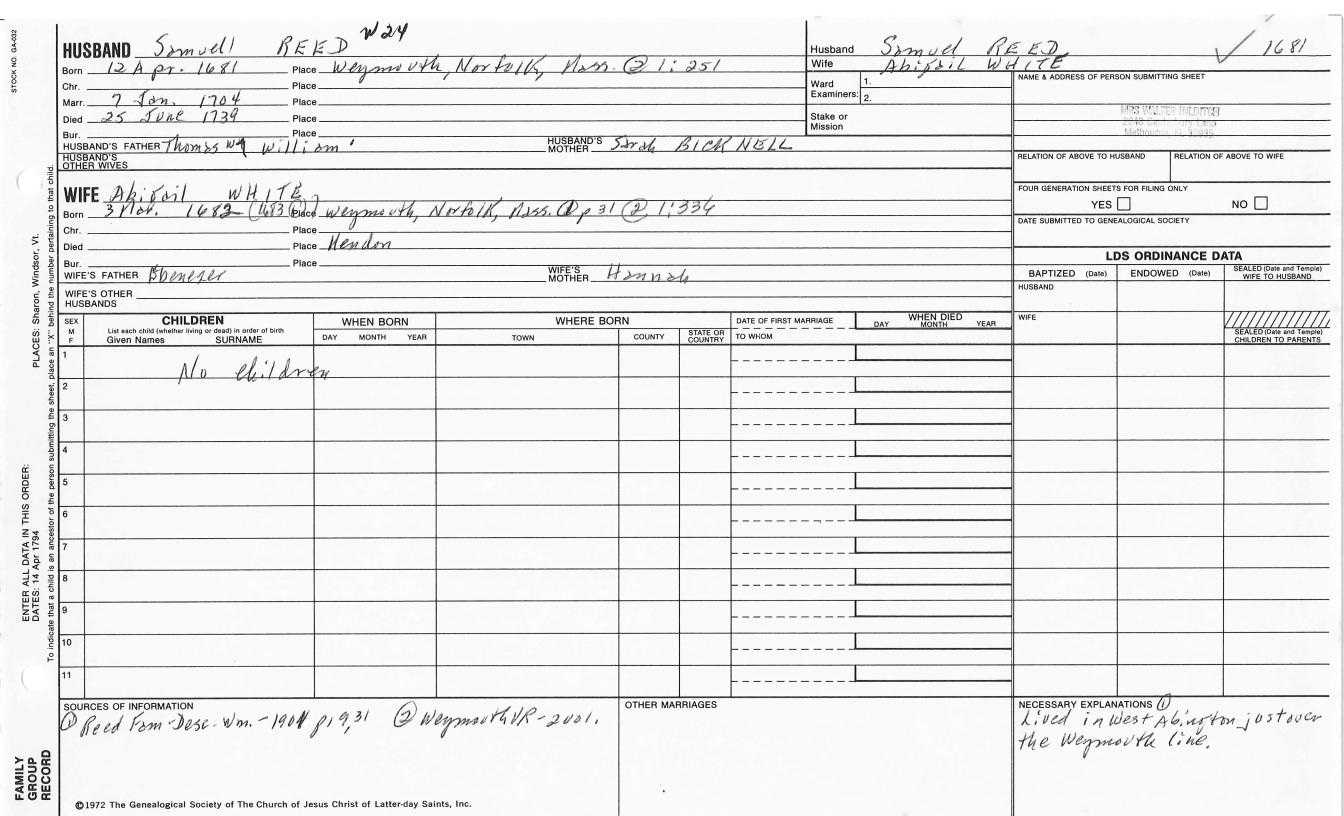 STOCK NO. GA-032
PLACES: Sharon, Windsor, Vt.
ENTER ALL DATA IN THIS ORDER:
DATES: 14 Apr 1794
To indicate that a child is an ancestor of the person submitting the sheet, place an "X" behind the number pertaining to that child.
FAMILY
GROUP
RECORD
W24
HUSBAND Samuel REED
Born 12 Apr. 1681 Place Weymouth, Norfolk, Mass. ② 1:251
Chr. Place
Marr. 7 Jan. 1704 Place
Died 25 June 1739 Place
Bur. Place
HUSBAND'S FATHER Thomas W9 William' HUSBAND'S MOTHER Sarah BICKNELL
HUSBAND'S OTHER WIVES
WIFE Abigail WHITE
Born 3 Mar. 1682 (1683 ②) Place Weymouth, Norfolk, Mass. ① p 31 ② 1:336
Chr. Place
Died Place Mendon
Bur. Place
WIFE'S FATHER Ebenezer WIFE'S MOTHER Hannah
WIFE'S OTHER HUSBANDS
Husband Samuel REED 1681
Wife Abigail WHITE
Ward Examiners: 1.
2.
Stake or Mission
NAME & ADDRESS OF PERSON SUBMITTING SHEET
MRS WALTER
RELATION OF ABOVE TO HUSBAND RELATION OF ABOVE TO WIFE
FOUR GENERATION SHEETS FOR FILING ONLY
YES NO
DATE SUBMITTED TO GENEALOGICAL SOCIETY
LDS ORDINANCE DATA
BAPTIZED (Date) ENDOWED (Date) SEALED (Date and Temple) WIFE TO HUSBAND
HUSBAND
WIFE
SEALED (Date and Temple) CHILDREN TO PARENTS
SEX M F
CHILDREN
List each child (whether living or dead) in order of birth
Given Names SURNAME
WHEN BORN
DAY MONTH YEAR
WHERE BORN
TOWN COUNTY STATE OR COUNTRY
DATE OF FIRST MARRIAGE
TO WHOM
WHEN DIED
DAY MONTH YEAR
1
No children
2
3
4
5
6
7
8
9
10
11
SOURCES OF INFORMATION
① Reed Fam-Desc. Wm.-1901 p.9,31 ② Weymouth VR-2001.
OTHER MARRIAGES
NECESSARY EXPLANATIONS ①
Lived in West Abington just over
the Weymouth line.
©1972 The Genealogical Society of The Church of Jesus Christ of Latter-day Saints, Inc.